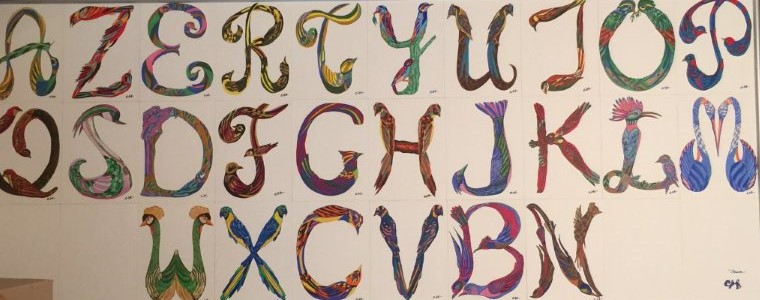 A Z E R T Y U I O P
Q S D F G H J K L M
W X C V B N